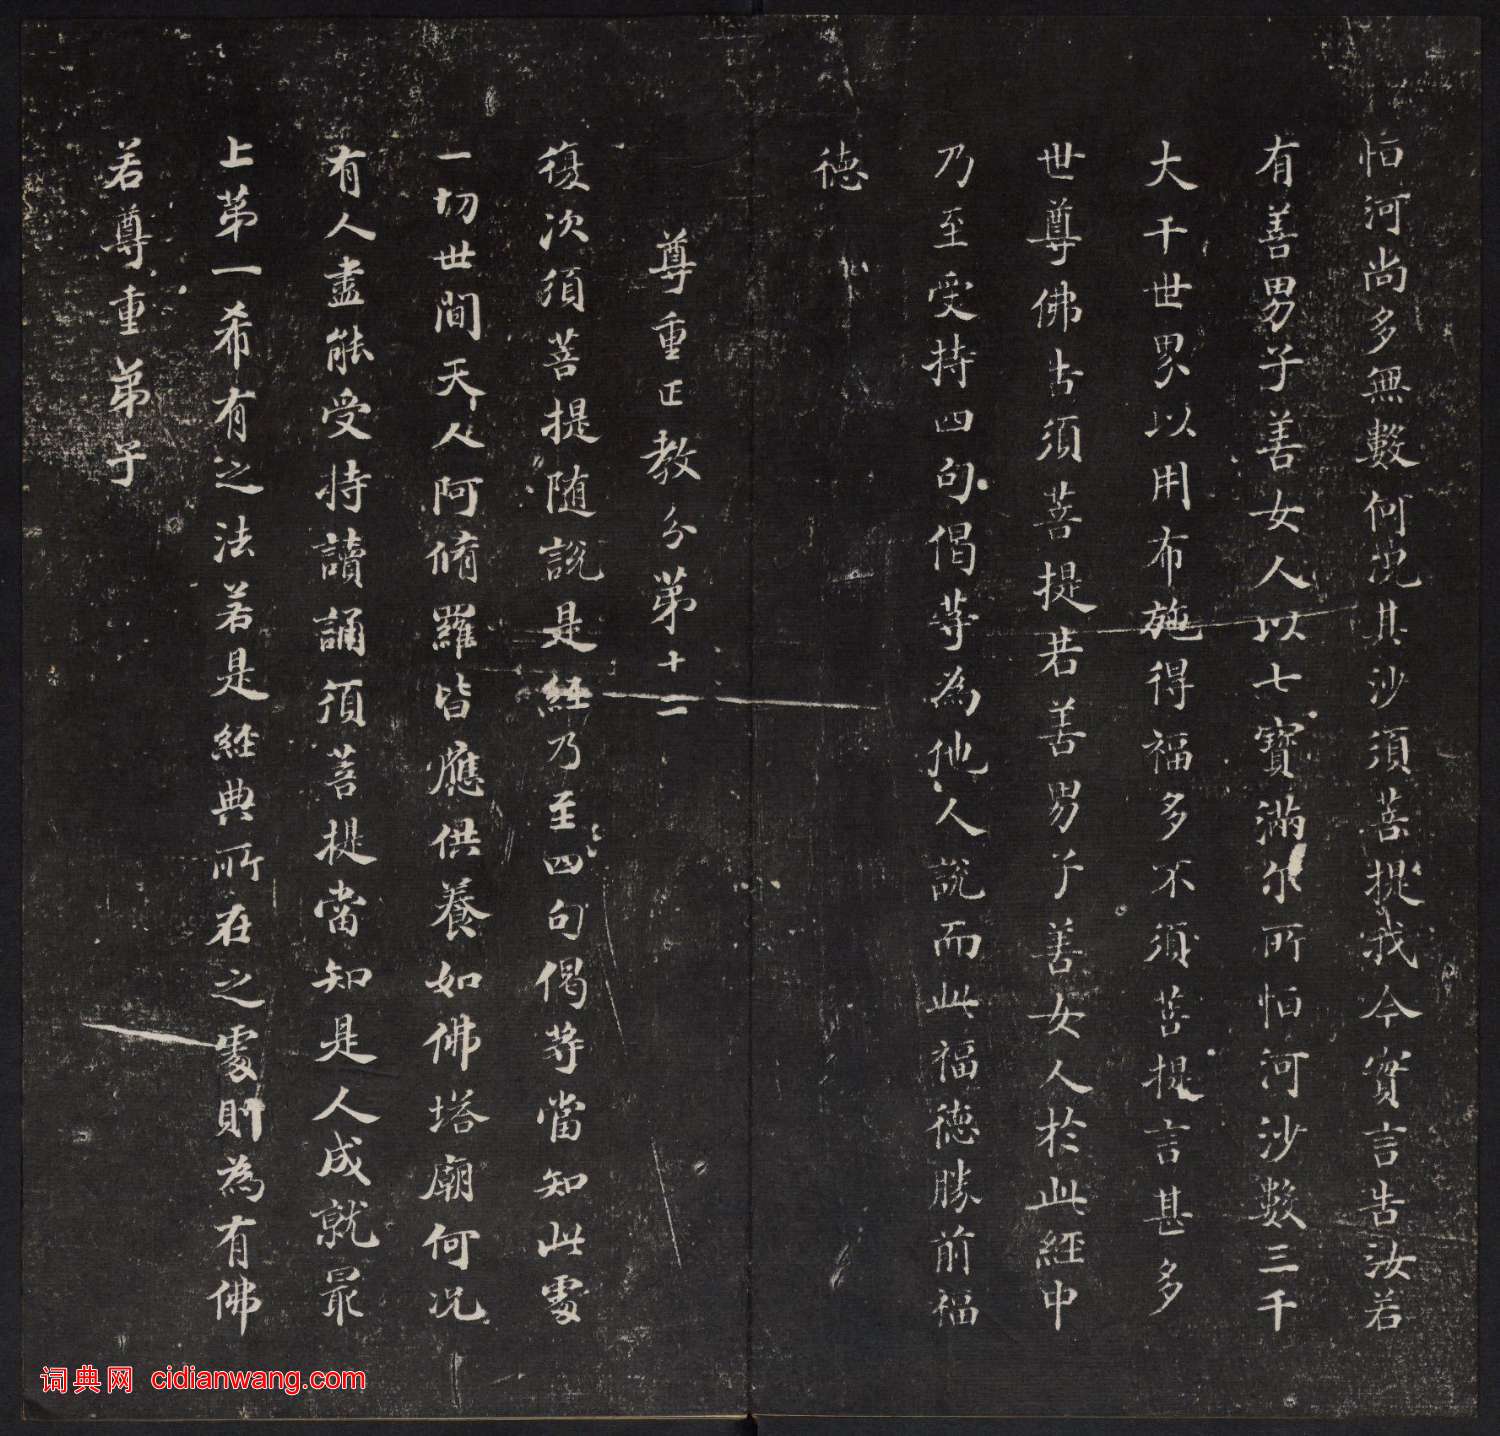 恒河尚多無數何況其沙須菩提我今實言告汝若
有善男子善女人以七寶滿尔所恒河沙數三千
大千世界以用布施得福多不須菩提言甚多
世尊佛告須菩提若善男子善女人於此經中
乃至受持四句偈等為他人說而此福德勝前福
德
尊重正教分第十二
復次須菩提随說是經乃至四句偈等當知此處
一切世間天人阿脩羅皆應供養如佛塔廟何況
有人盡能受持讀誦須菩提當知是人成就最
上第一希有之法若是經典所在之處則為有佛
若尊重弟子
词典网 cidianwang.com